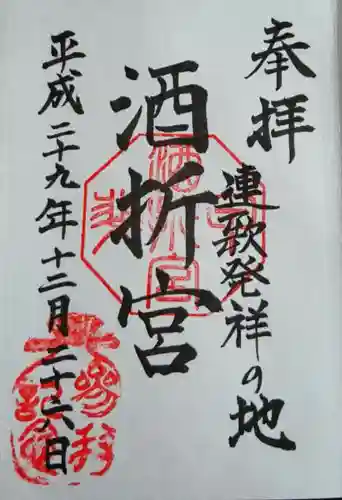 奉拝
連歌発祥の地
酒折宮
平成二十九年十二月二十六日